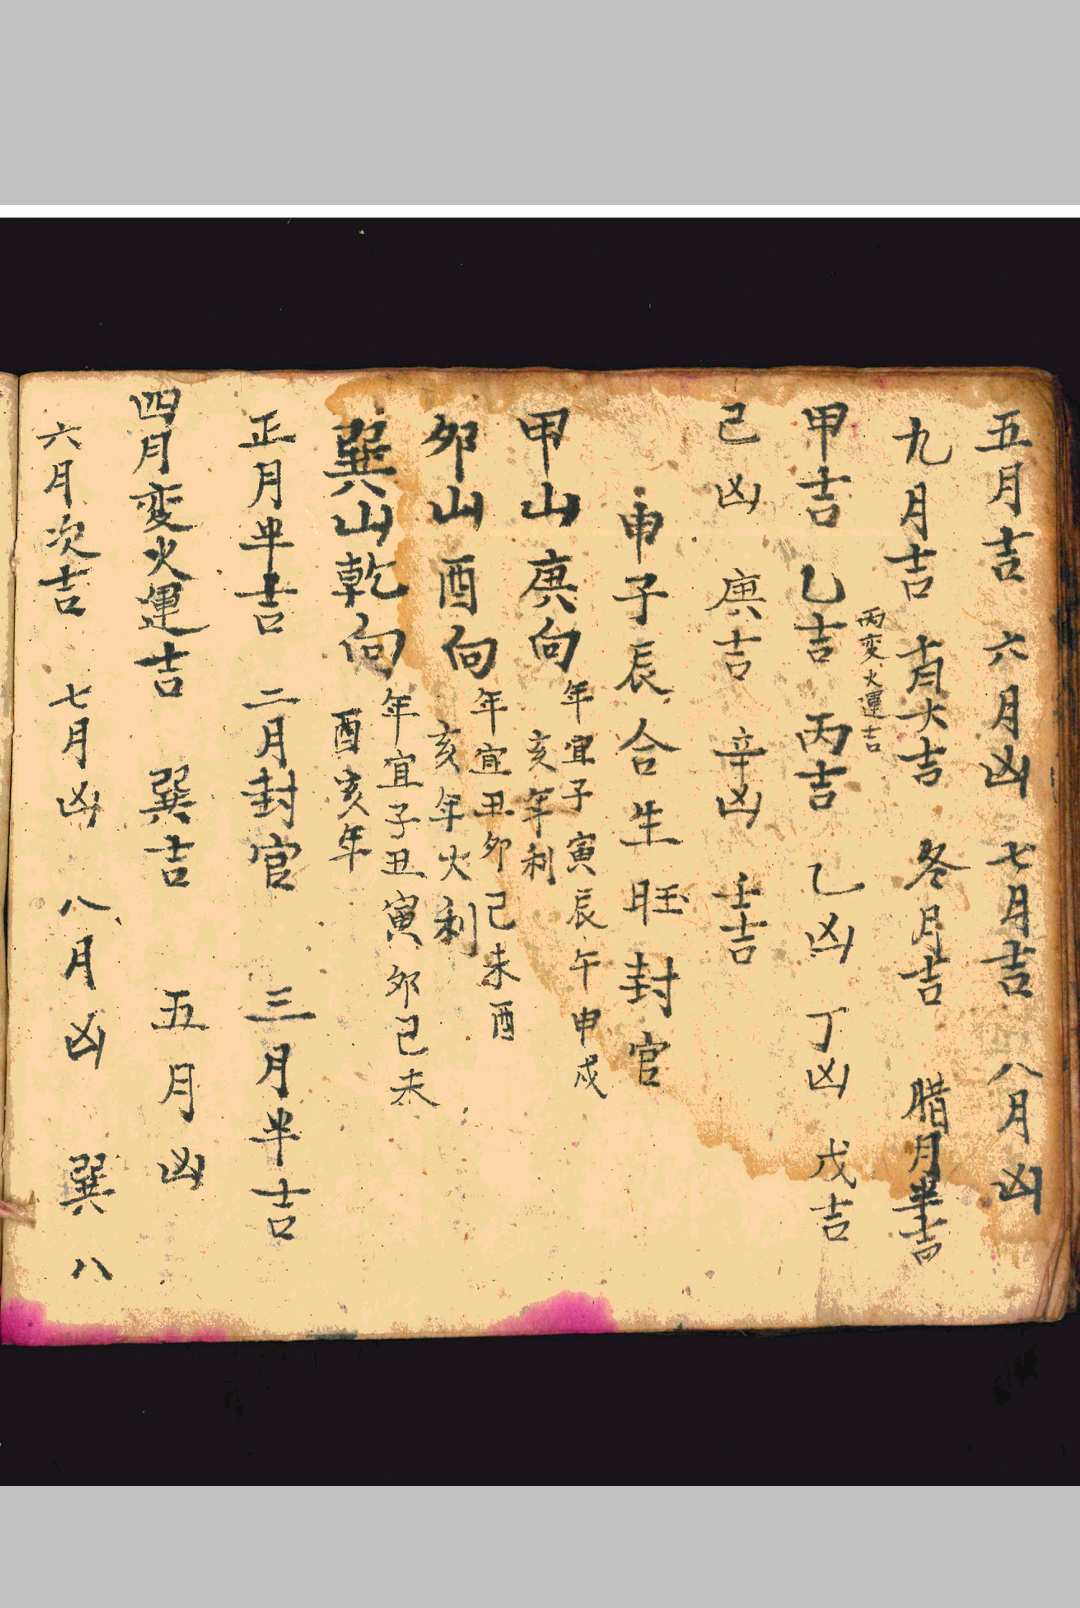 五月吉 六月凶 七月吉 八月凶
九月吉 十月大吉 冬月吉 腊月半吉
丙变火運吉
甲吉 乙吉 丙吉 乙凶 丁凶 戊吉
己凶 庚吉 辛凶 壬吉
申子辰合生旺封官
甲山庚向 年宜子寅辰午申戌
亥年利
卯山酉向 年宜丑卯己未酉
亥年火利
巽山乾向 年宜子丑寅卯己未
酉亥年
正月半吉 二月封官 三月半吉
四月变火運吉 巽吉 五月凶
六月次吉 七月凶 八月凶 巽 八